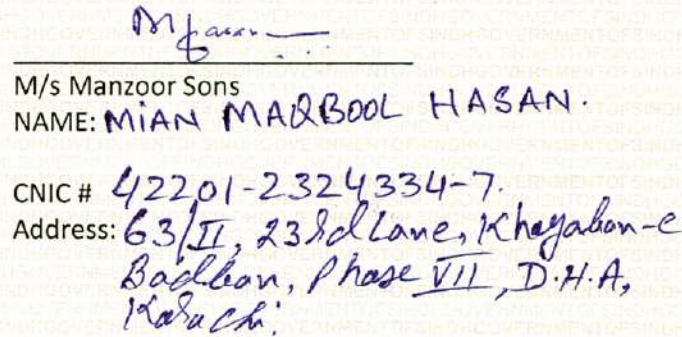 M/s Manzoor Sons
NAME: MIAN MAQBOOL HASAN.
CNIC # 42201-2324334-7.
Address: 63/II, 23rd Lane, Khayaban-e
Badban, Phase VII, D.H.A,
Karachi.